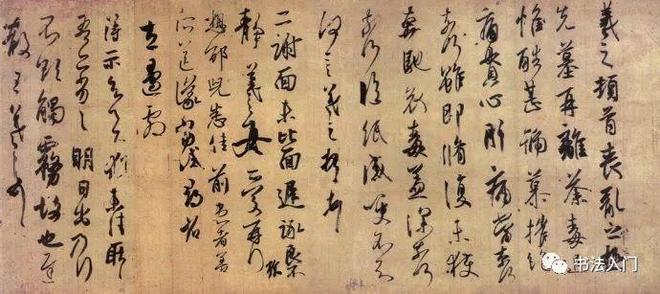 羲之頓首喪亂之極
先墓再離荼毒追
惟酷甚號慕摧絕
痛貫心肝痛當奈何
奈何雖即脩復未獲
奔馳哀毒益深奈何
奈何臨紙感哽不知
何言羲之頓首頓首
二謝面未比面遲詠良不
靜羲之女愛再拜
想邰兒悉佳前患者善
送議當
左邊劇
得示知足下猶未佳耿耿
吾亦劣劣明日出乃行
不欲觸霧故也遲
散王羲之頓首
书法入门